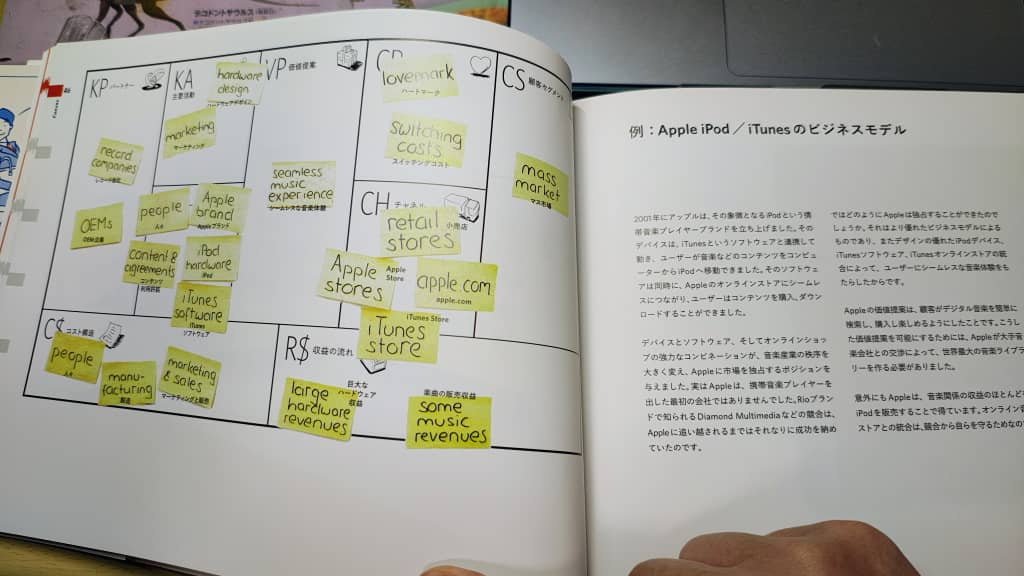 46
KP パートナー
KA
主要活動
VP 価値提案
CS 顧客セグメント
CH チャネル
C$ コスト構造
R$ 収益の流れ
record
companies
OEMs
OEM企業
hardware
design
ハードウェアデザイン
marketing
マーケティング
people
人々
Apple
brand
Appleブランド
content &
agreements
コンテンツ
利用許諾
iPod
hardware
iPod
iTunes
software
iTunes
ソフトウェア
seamless
music
experience
シームレスな音楽体験
lovemark
ハートマーク
switching
costs
スイッチングコスト
retail
stores
小売店
Apple
stores
Apple
Store
apple.com
apple.com
iTunes Store
iTunes
store
mass
market
マス市場
people
人々
manu-
facturing
製造
marketing
& sales
マーケティングと販売
large
hardware
revenues
巨大な
ハードウェア
収益
楽曲の販売収益
some
music
revenues
例：Apple iPod／iTunesのビジネスモデル
2001年にアップルは、その象徴となるiPodという携
帯音楽プレイヤーブランドを立ち上げました。その
デバイスは、iTunesというソフトウェアと連携して
動き、ユーザーが音楽などのコンテンツをコンピュ
ーターからiPodへ移動できました。そのソフトウェ
アは同時に、Appleのオンラインストアにシームレ
スにつながり、ユーザーはコンテンツを購入、ダウン
ロードすることができました。
デバイスとソフトウェア、そしてオンラインショッ
プの強力なコンビネーションが、音楽産業の秩序を
大きく変え、Appleに市場を独占するポジションを
与えました。実はAppleは、携帯音楽プレイヤーを
出した最初の会社ではありませんでした。Rioブラン
ドで知られるDiamond Multimediaなどの競合は、
Appleに追い越されるまではそれなりに成功を納め
ていたのです。
ではどのようにAppleは独占することができたので
しょうか。それはより優れたビジネスモデルによる
ものであり、またデザインの優れたiPodデバイス、
iTunesソフトウェア、iTunesオンラインストアの統
合によって、ユーザーにシームレスな音楽体験をも
たらしたからです。
Appleの価値提案は、顧客がデジタル音楽を簡単に
検索し、購入し楽しめるようにしたことです。こうし
た価値提案を可能にするためには、Appleが大手音
楽会社との交渉によって、世界最大の音楽ライブラ
リーを作る必要がありました。
意外にもAppleは、音楽関係の収益のほとんど
iPodを販売することで得ています。オンライン
ストアとの統合は、競合から自らを守るためなの